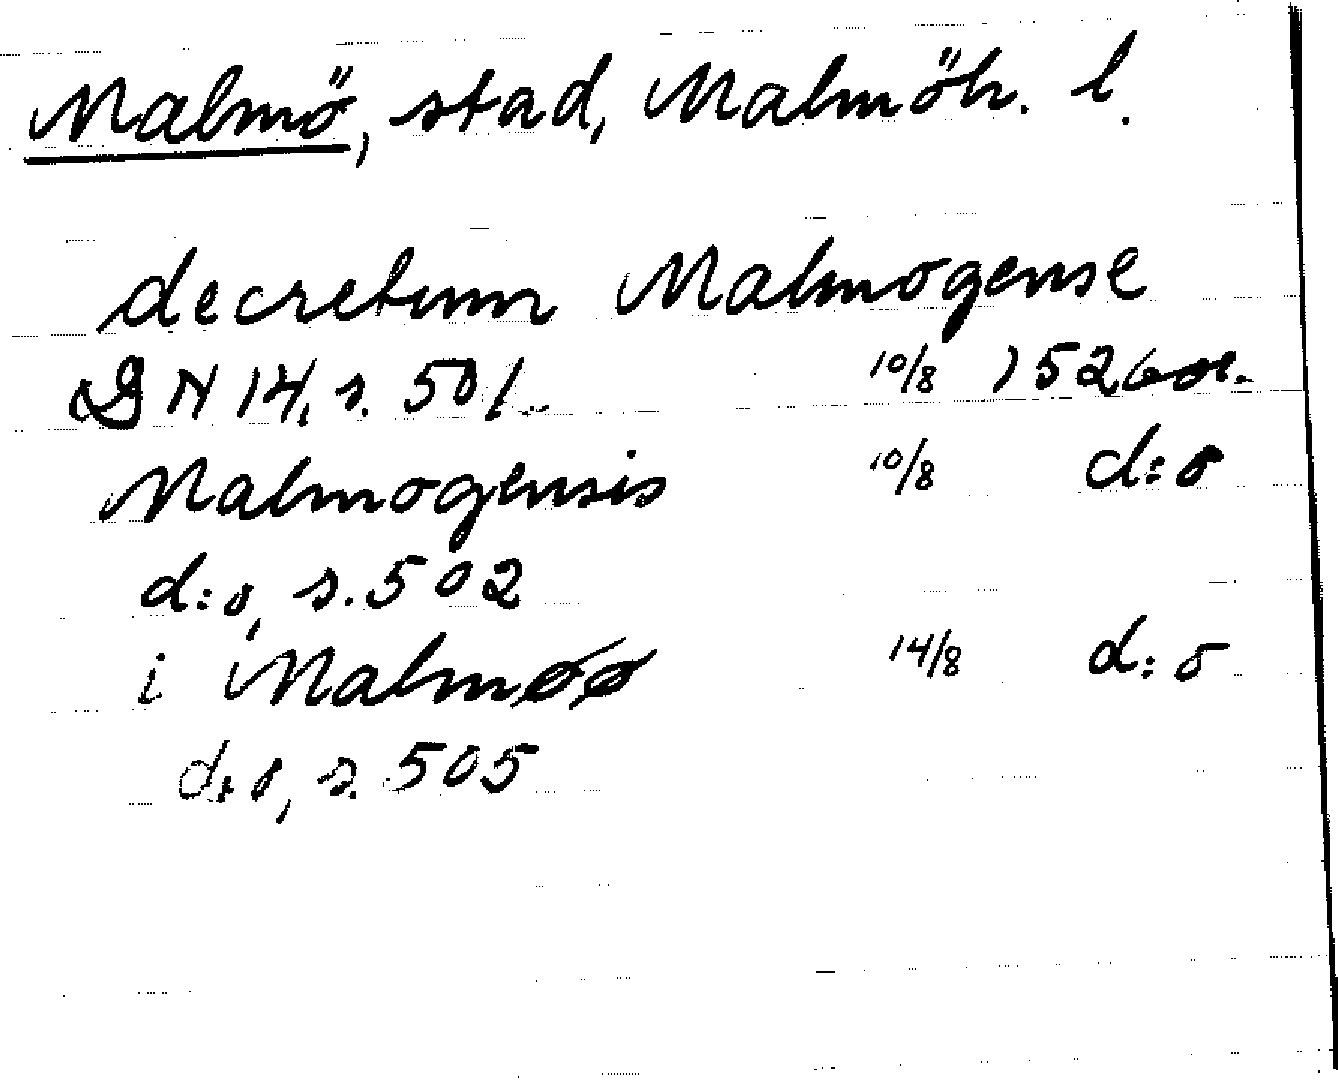 Malmö, stad, Malmöh. l.
decretum Malmogense
DN 14, s. 501. 10/8 1526 or.
Malmogensis 10/8 d:o
d:o, s. 502
i Malmøø 14/8 d:o
d:o, s. 505